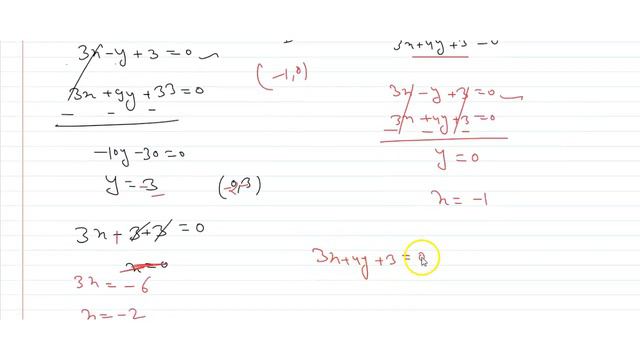 3x - y + 3 = 0
3x + 9y + 33 = 0
- - -
-10y - 30 = 0
y = -3
3x + 3 + 3 = 0
3x = -6
x = -2
(-1,0)
3x + 4y + 3 = 0
3x - y + 3 = 0
3x + 4y + 3 = 0
- - -
y = 0
x = -1
3x + 4y + 3 =